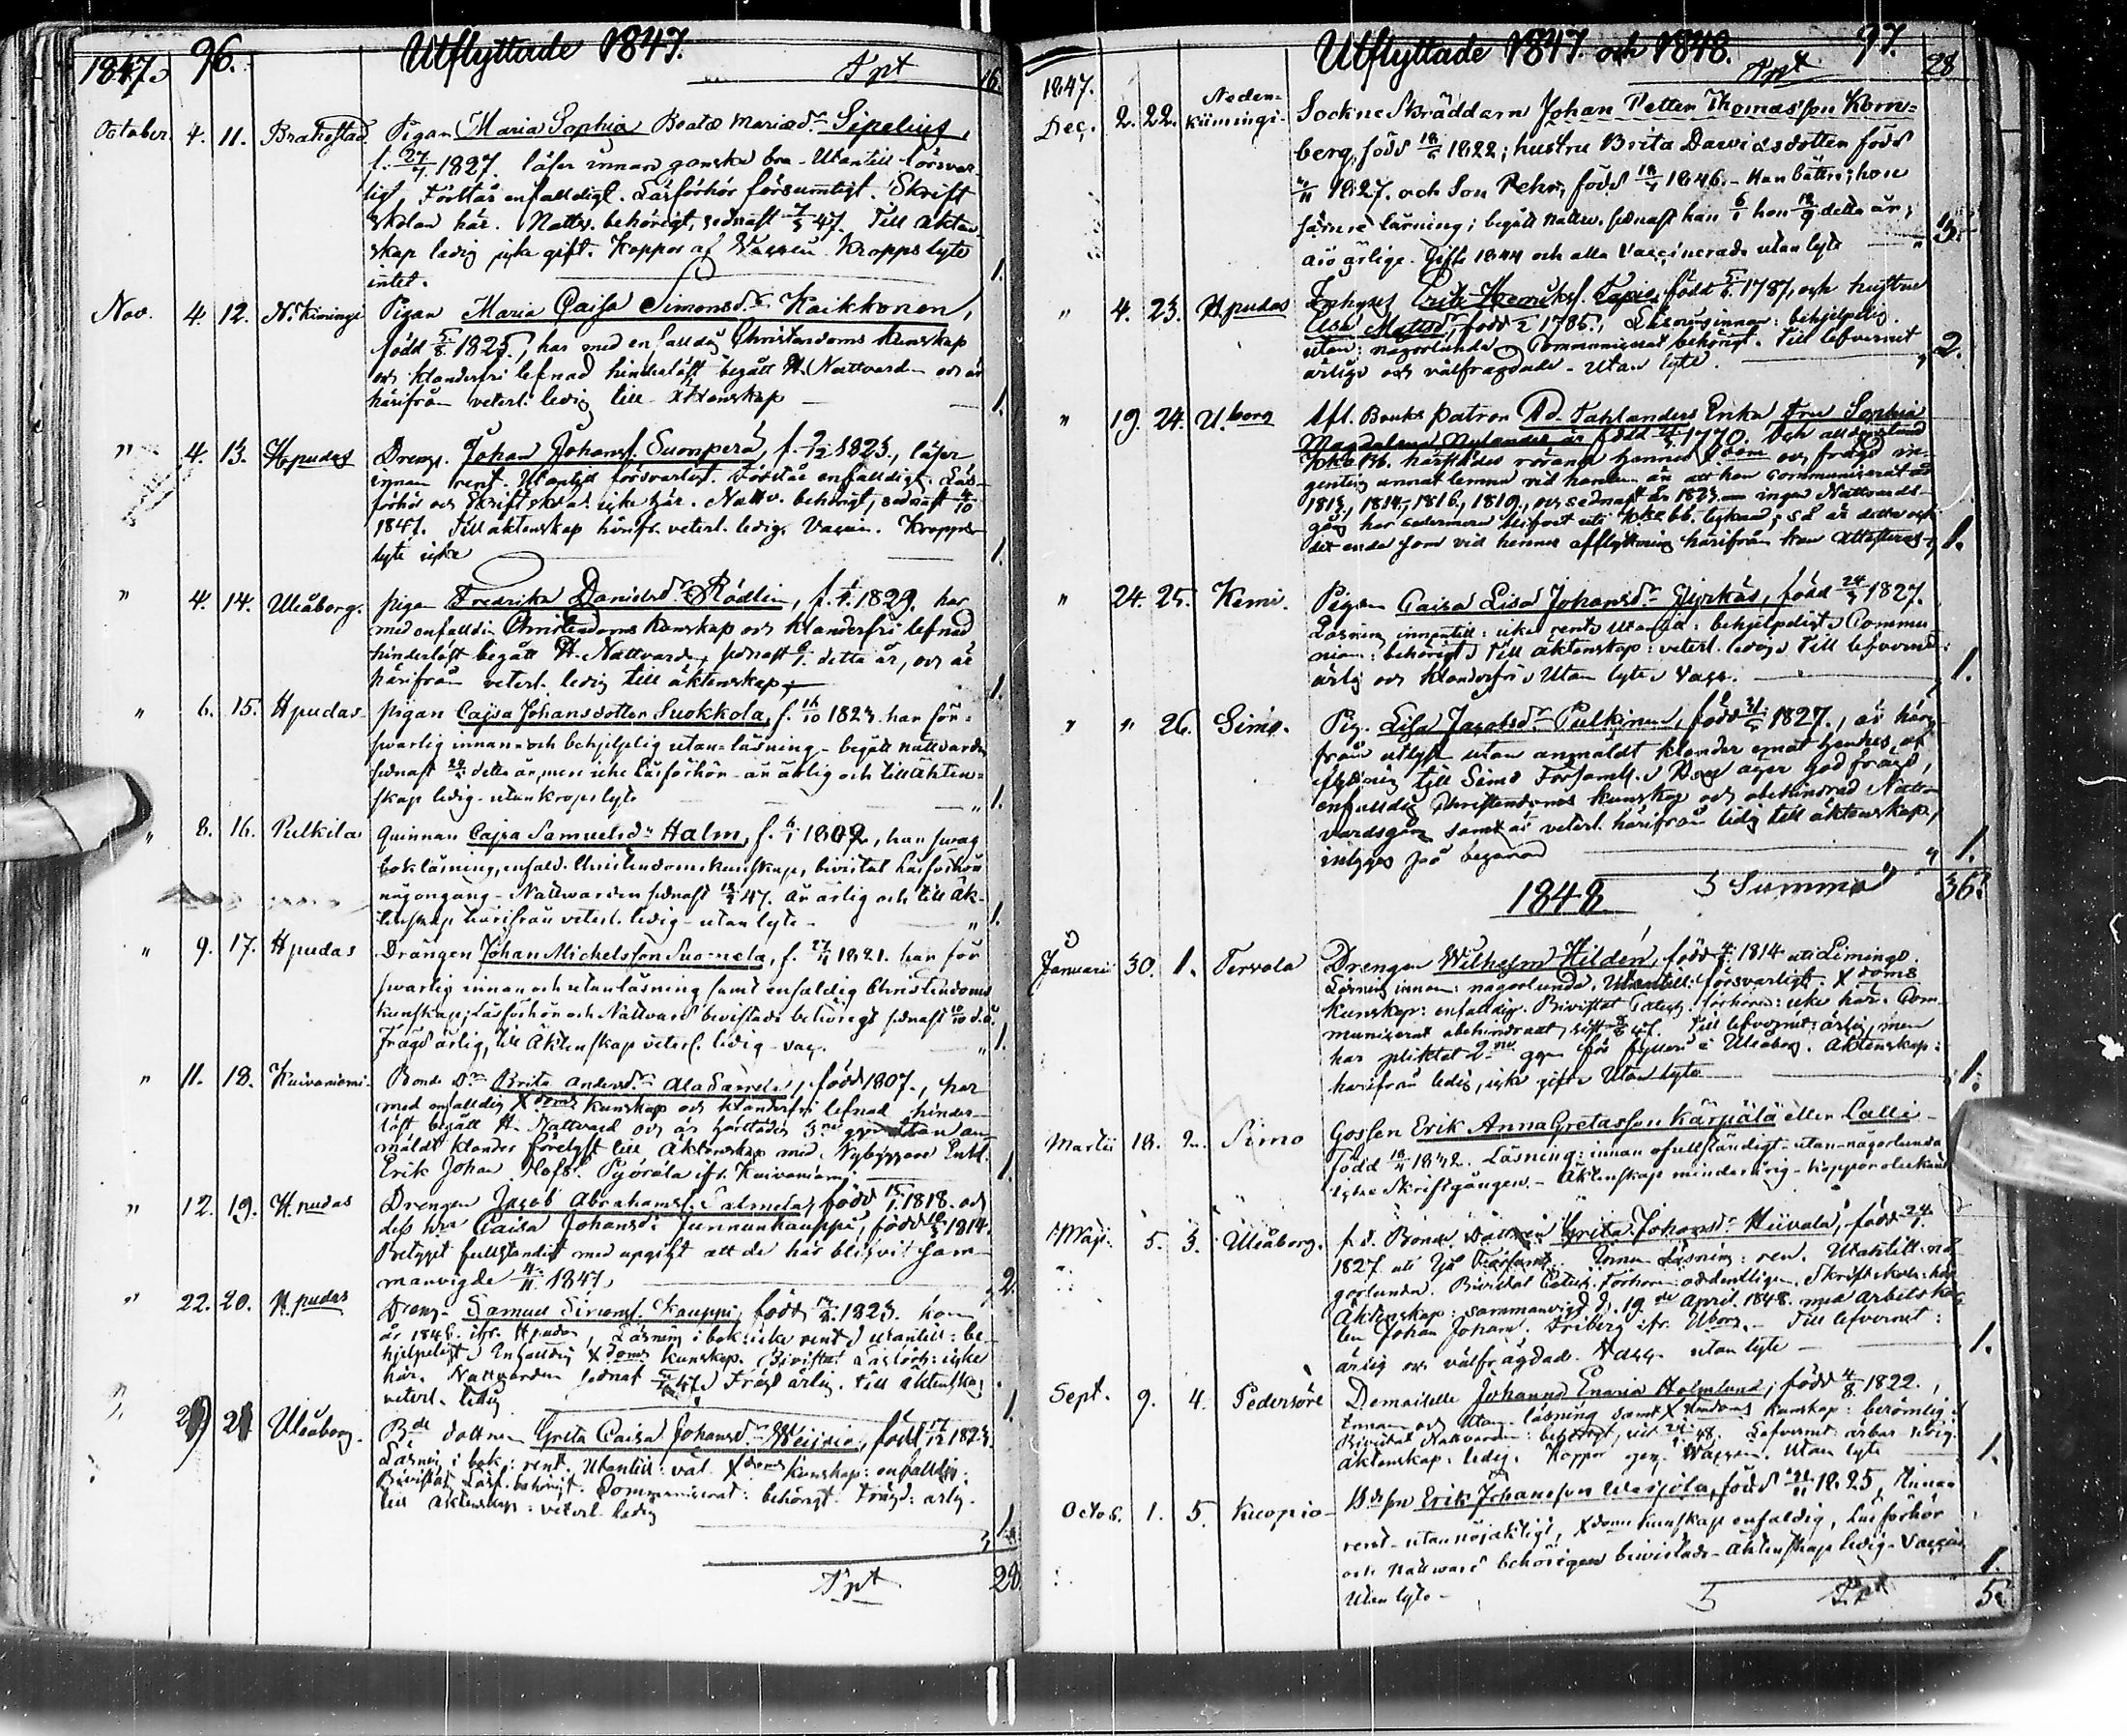 96.
Utflyttade 1847.
1847.
Tpt
16.
October. 4. 11. Brahestad. Pigan Maria Sophia Beatæ Mariædr Sipelius,
f. 27/7 1827. läser innan ganska bra - Utantill försvar-
ligt, Förstår enfaldigt. Läsförhör försumligt. Skrift
skolan här. Nattv. behörigt, sednast 47. Till äkten-
skap ledig icke gift. Koppor af Vaccin. Kroppslyte
intet. 1.
Nov. 4. 12. N. Kiminge Pigan Maria Caisa Simonsdr Kaikkonen,
född 5/8 1825., har med enfalldig Christendoms kunskap
och klanderfri lefnad hinderlöst begått H. Nattvard och är
härifrån veterl. ledig till äktenskap 1.
" 4. 13. Hpudas Dreng. Johan Johansf. Sumperå, f. 1823., läser
innan rent. Utantill försvarligt. Förstår enfalldigt. Läs-
förhör och Skriftskolan icke här. Nattv. behörigt, sednast
1847. Till äktenskap härifr. veterl. ledig. Vaccin. Kropps-
lyte icke 1.
" 4. 14. Uleåborg. pigan Fredrika Danielsdr Rödlin, f. 1829. har
med enfalldig Christendoms kunskap och klanderfri lefnad
hinderlöst begått H. Nattvard, sednast detta år, och är
härifrån veterl. ledig till äktenskap 1.
" 6. 15. Hpudas pigan Cajsa Johansdotter Suokkola, f. 16/10 1823. har för-
svarlig innan- och behjelpelig utan-läsning - begått nattvarden
sednast detta år, men icke Läsförhör - är ärlig och till äkten-
skap ledig - utan kropslyte " 1.
" 8. 16. Pulkila Quinnan Cajsa Samuelsdr Halm, f. 6/1 1802, har svag
bokläsning, enfald. Christendomskunskap, bivistat Läsförhör
någongång - Nattvarden sednast 47. Är ärlig och till äk-
tenskap härifrån veterl. ledig - utan lyte - " 1.
" 9. 17. Hpudas Drängen Johan Michelsson Suomela, f. 1821. har för
svarlig innan och utanläsning samt enfaldig Christendoms
kunskap; Läsförhör och Nattvard bevistade behörigt sednast 10/10 d.å.
Frägd ärlig, till Äktenskap veterl. ledig - vac. " 1.
" 11. 18. Kuivaniemi Bonde Dr Brita Andersdr AlaSawela, född 1807., har
med enfalldig Xdoms kunskap och klanderfri lefnad hinder-
löst begått H. Nattvard och är härstädes 3ne ggr utan an-
mäldt klander förelyst till Äktenskap med Nybyggare Enkl.
Erik Johan Pyörälä ifr. Kuivaniemi 1.
" 12. 19. H.pudas Drengen Jacob Abrahamsf. Salmela, född 15/1 1818. och
dess hu Caisa Johansdr Junnunkauppi, född 1814.
Betyget fullständigt med upgift att de här blifvit sam-
manvigde 4/11 1847. 2.
" 22. 20. H.pudas Dreng Samuel Simonsf. Kauppi, född 1823. kom
år 184 ifr. Hpudas, Läsning i bok: icke rent utantill: be-
hjelpeligt. Enfalldig Xdoms kunskap. Bivistat Läsförh: icke
här. Nattvarden sednast 47. Frägd ärlig. Till äktenskap
veterl. ledig 1.
29 21 Uleåborg. Bde dottren Greta Caisa Johansdr Weijola, född 17/12 1823.
Läsning i bok: rent. Utantill: väl Xdoms kunskap: enfalldig.
Bivistat Läsf. behörigt. Communicerat: behörigt. Frägd: ärlig.
till äktenskap: veterl. ledig 1.
Tpt 28.
97.
Utflyttade 1847. och 1848.
1847.
Tpt
28
Dec. 2. 22. Neden-
kiimingi. Sockne Skräddarn Johan Petter Thomasson Korn-
berg, född 18/6 1822; hustru Brita Dawidsdotter född
4/11 1827. och Son Pehr, född 1846. - Han bättre; hon
sämre läsning; begått nattv. sednast han 6/1 hon detta år;
äro ärlige. Gifte 1844 och alla Vaccinerade utan lyte " 3.
" 4. 23. H.pudas Inhyses Erik Henriksf. Tapio, född 1787, och hustru
Lisa Mattsdr, född 1785., Läsning innan: behjelpelig.
utan: någorlunda Communicerat behörigt. Till lefvernet
ärlige och välfrägdade - Utan lyte. " 2.
" 19. 24. U.borg Afl. Bruks patron Ad. Fahlanders Enka Fru Sophia
Magdalena Nylander är född 1770. Och alldenstund
Kkobb. härstädes rörande hennes Xdom och frägd in-
genting annat lemna vid handen än att hon Communicerat åren
1813, 1814, 1816, 1819, och sednast år 1823 - ingen Nattvards-
gång har sedermera blifvet uti Kkobb. teknad; så är detta ock
det enda som vid hennes afflyttning härifrån kan attesteras. 1.
" 24. 25. Kemi. Pigan Caisa Lisa Johansdr Styrkäs, född 24/3 1827.
Läsning innantill: icke rent utantill: behjelpeligt. Commu-
nion: behörigt. Till äktenskap: veterl. ledig. Till lefvernet:
ärlig och klanderfri. Utan lyte. Vacc. 1.
" " 26. Simo. Pig. Lisa Jacobsdr Pulkinen, född 31/5 1827., är här-
ifrån utlyst utan anmäldt klander emot hennes af
flyttning till Simo Församl. Hon äger god frägd,
enfalldig Christendoms kunskap och obehindrad Natt-
vardsgång samt är veterl. härifrån ledig till äktenskap,
intygas på begäran " 1.
Summa 36.
1848
Januari 30. 1. Tervola Drengen Wilhelm Hildén, född 1814 uti Limingo.
Läsning innan: någorlunda. Utantill: försvarligt. Xdoms
kunskap: enfalldig. Bivistat Catech. förhören: icke här. Com-
municerat obehindradt, sist 47. Till lefvernet: ärlig, men
har pliktat 2ne ggr för fylleri i Uleåborg. Äktenskap:
härifrån ledig, icke gift. Utan lyte 1.
Martii 18. 2. Simo Gossen Erik AnnaGretasson Kärpälä eller Lalli -
född 18/4 1832. Läsning: innan ofullständigt - utan någorlunda
icke Skriftgången. - Äktenskap minderårig - koppor obekant
Maji 5. 3. Uleåborg. f.d. Bonde Dottren Greta Johansdr Hiivala, född 24/1
1827 uti Ijo Församl. Innan Läsning: ren. Utantill: nå-
gorlunda. Bivistat Catech. förhören: ordentligen. Skriftskola: här
Äktenskap: sammanvigd d. 19de April 1848. med arbetskar-
len Johan Johansf. Friberg ifr. Uborg. - Till lefvernet:
ärlig och välfrägdad. Vacc. utan lyte - 1.
Sept. 9. 4. Pedersöre Demoiselle Johanna Enaria Holmlund, född 4/8 1822.,
Innan och Utan läsning samt Xstendoms kunskap: berömlig.
Bivistat Nattvarden: behörigt, sist 48. Lefvernet: ärbar sedig.
Äktenskap: ledig. Koppor egn. Vaccin. Utan lyte 1.
Octob. 1. 5. Kuopio Bdeson Erik Johansson Weijola, född 21/11 1825, Innan
rent - utan nöjaktigt, Xdoms kunskap enfaldig, Läsförhör
och Nattvard behörigen bevistade - Äktenskap ledig - Vaccin
Utan lyte - 1.
5 Tpt 5.